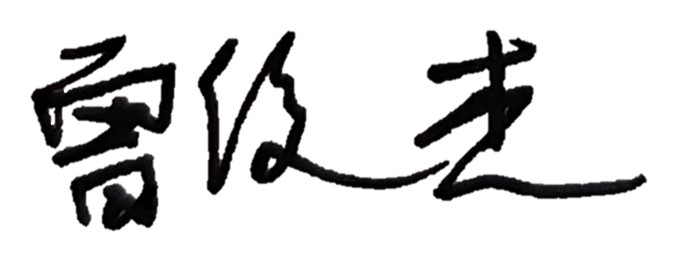 曾俊杰